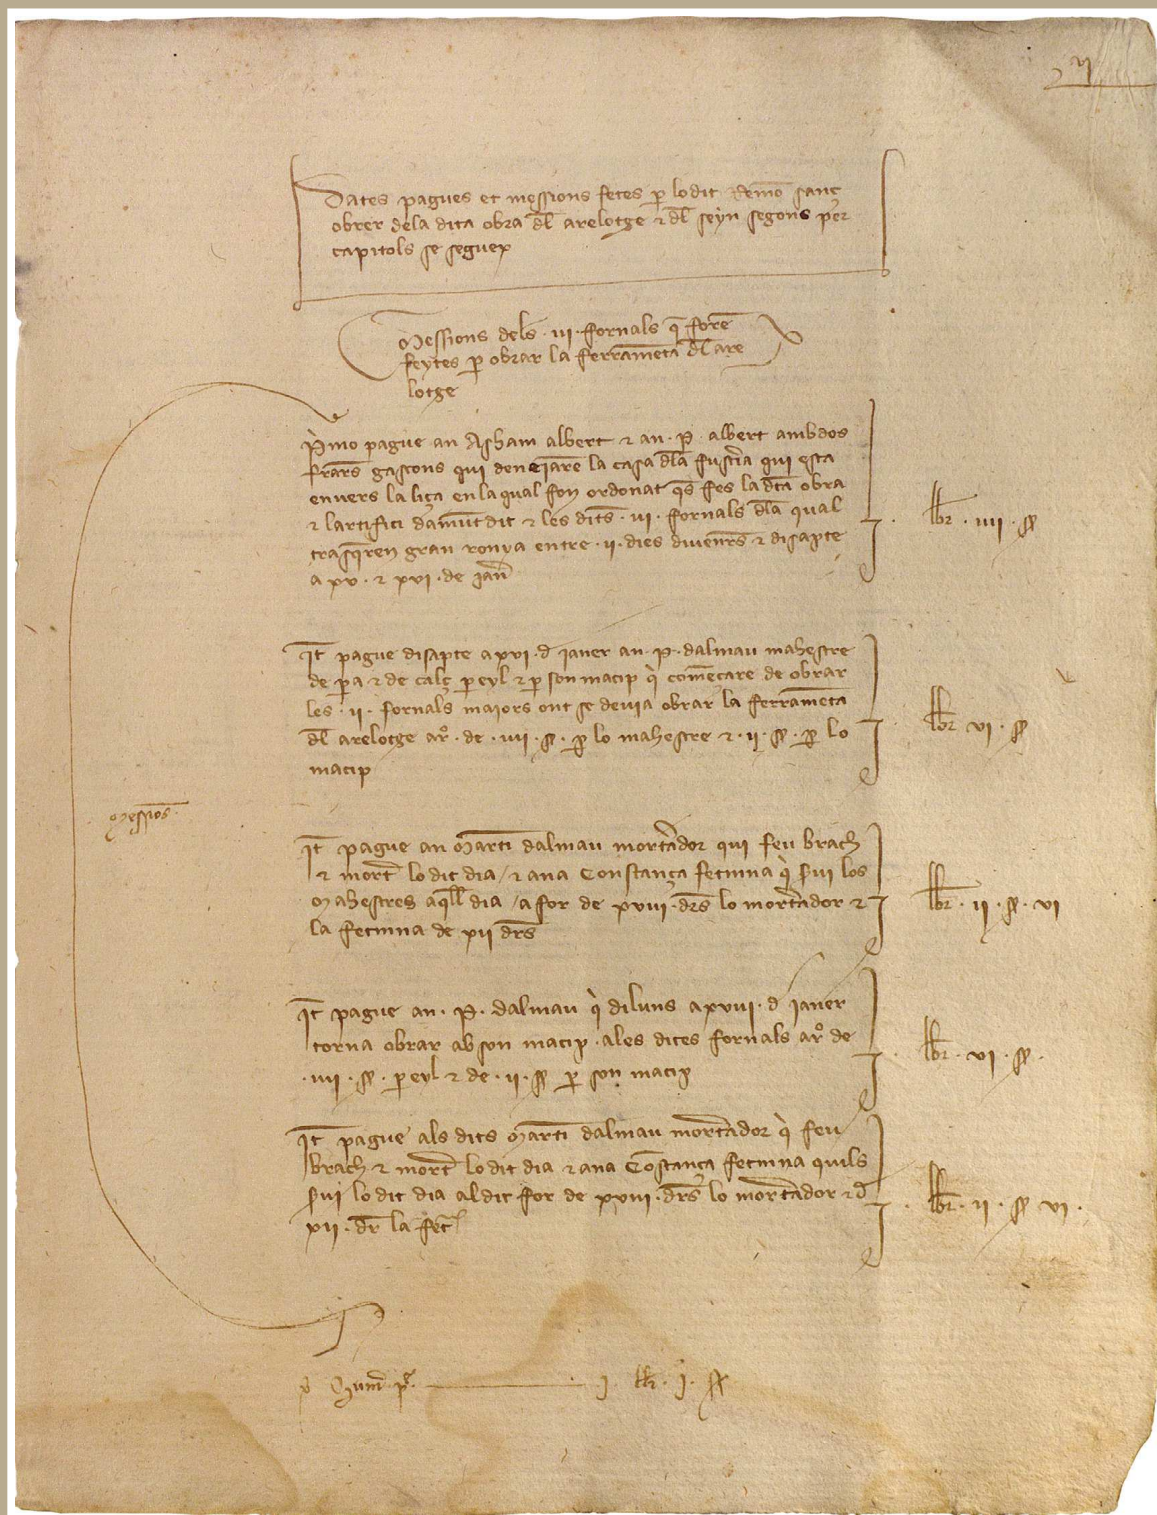 vj
Dates pagues et messions fetes p lodit Remo sanç
obrer dela dita obra dl arelotge τ dl seyn segons per
capitols se seguex
Messions dels · iii · fornals q̄ forē
feytes p obrar la ferramēta dl are
lotge
P̀mo pague an Asham albert τ an · P · albert ambdos
frars gascons qui denejarē la casa dla fusteria qui esta
envers la liça en la qual fon ordonat q̄s fes la dta obra
τ lartifici damūt dit τ les dits · iii · fornals dla qual
trasq̄ren gran ronya entre · ii · dies divenrs τ disapte
a xv · τ xvi · de jan
lbr · iiii · ss
It pague disapte a xvi · d janer an · P · dalmau mahestre
de pa τ de calç p eyl τ p son macip q̀ comēçare de obrar
les · ii · fornals maiors ont se devia obrar la ferramēta
dl arelotge aro · de · iiii · ss · p lo mahestre τ · ii · ss · p lo
macip
lbr vi · ss
Messiōs
It pague an Marti dalmau morterador qui feu brach
τ mort lo dit dia / τ ana Constança fembna q̀ svi los
Mahestres aqll dia / a for de xviii · drs lo morterador τ
la fembna de xii drs
lbr · ii · ss · vi
It pague an · P · dalmau q̀ diluns a xviii · d janer
torna obrar ab son macip · ales dites fornals aro de
· iiii · ss · p eyl τ de · ii · ss p son macip
lbr · vi · ss ·
It pague als dits Marti dalmau morterador q̀ feu
brach τ mort lo dit dia τ ana Cōstança fembna quils
svi lo dit dia al dit for de xviii · drs lo morterador τ d
xii · dr la feb
lbr · ii · ss vi ·
Sum pa · j lbr · j · ss